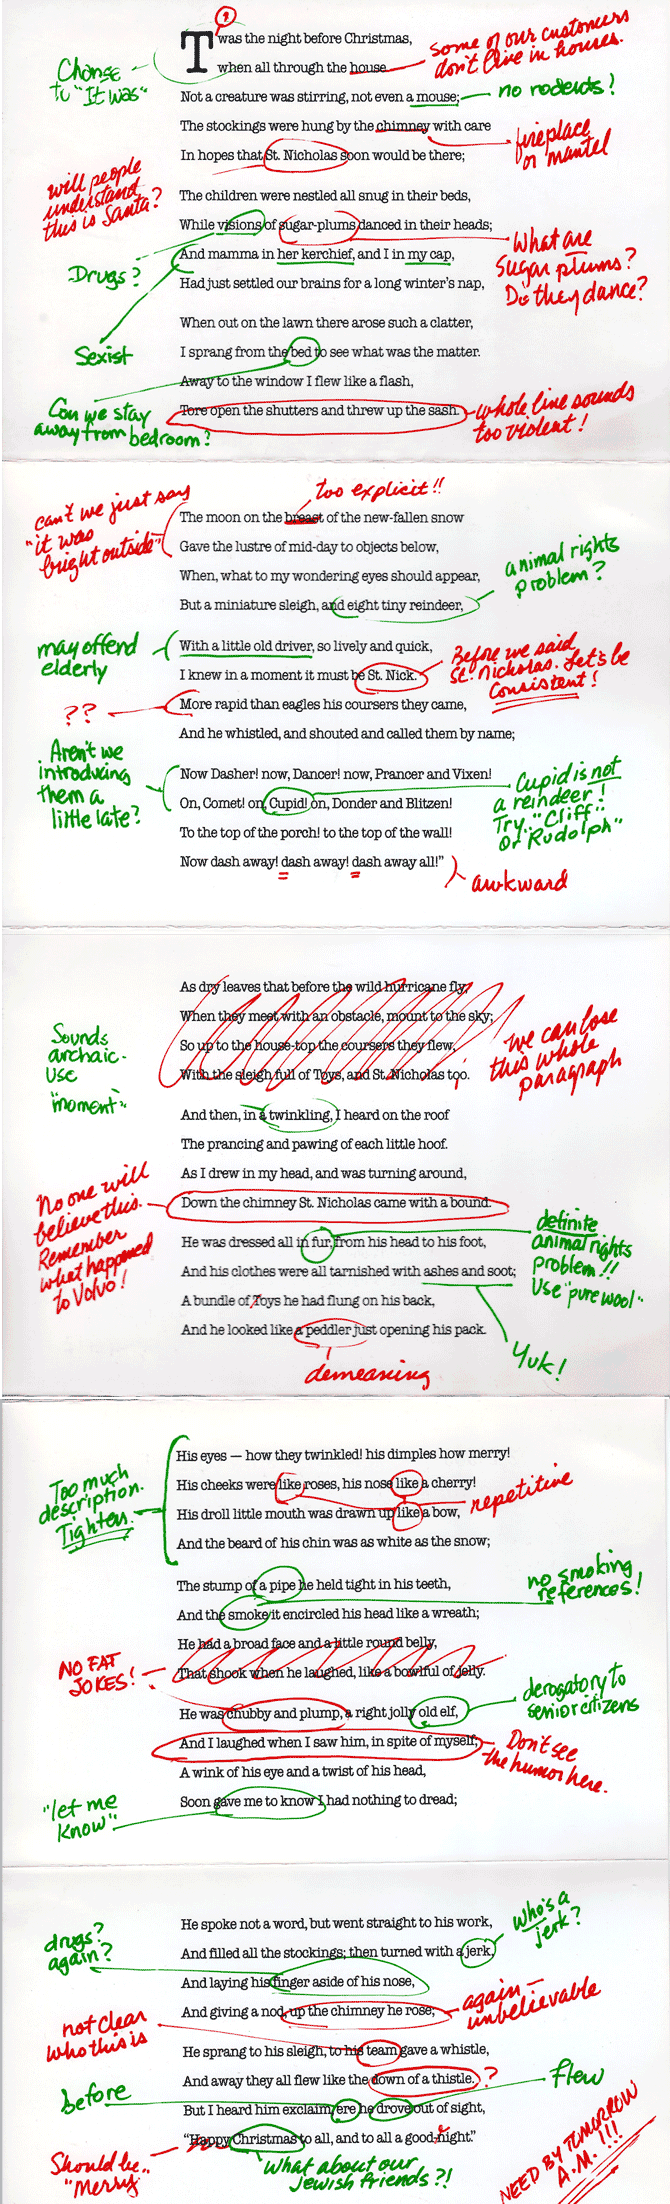 ?
Twas the night before Christmas,
when all through the house
some of our customers
don't live in houses.
Change
to "It was"
Not a creature was stirring, not even a mouse;
no rodents!
The stockings were hung by the chimney with care
fireplace
or mantel
In hopes that St. Nicholas soon would be there;
will people
understand
this is Santa?
The children were nestled all snug in their beds,
While visions of sugar-plums danced in their heads;
What are
sugar plums?
Do they dance?
Drugs?
And mamma in her kerchief, and I in my cap,
Had just settled our brains for a long winter's nap,
Sexist
When out on the lawn there arose such a clatter,
I sprang from the bed to see what was the matter.
Away to the window I flew like a flash,
Can we stay
away from bedroom?
Tore open the shutters and threw up the sash.
whole line sounds
too violent!
can't we just say
"it was
bright outside"
too explicit!!
The moon on the breast of the new-fallen snow
Gave the lustre of mid-day to objects below,
When, what to my wondering eyes should appear,
But a miniature sleigh, and eight tiny reindeer,
animal rights
problem?
may offend
elderly
With a little old driver, so lively and quick,
I knew in a moment it must be St. Nick.
Before we said
St. Nicholas. Let's be
Consistent!
??
More rapid than eagles his coursers they came,
And he whistled, and shouted and called them by name;
Aren't we
introducing
them a
little late?
Now Dasher! now, Dancer! now, Prancer and Vixen!
On, Comet! on, Cupid! on, Donder and Blitzen!
Cupid is not
a reindeer!
Try "Cliff"
or "Rudolph"
To the top of the porch! to the top of the wall!
Now dash away! dash away! dash away all!"
awkward
As dry leaves that before the wild hurricane fly,
When they meet with an obstacle, mount to the sky;
So up to the house-top the coursers they flew,
With the sleigh full of Toys, and St. Nicholas too.
we can lose
this whole
paragraph
Sounds
archaic.
Use
"moment"
And then, in a twinkling, I heard on the roof
The prancing and pawing of each little hoof.
As I drew in my head, and was turning around,
Down the chimney St. Nicholas came with a bound.
No one will
believe this.
Remember
what happened
to Volvo!
He was dressed all in fur, from his head to his foot,
And his clothes were all tarnished with ashes and soot;
definite
animal rights
problem!!
Use "pure wool"
A bundle of Toys he had flung on his back,
And he looked like a peddler just opening his pack.
Yuk!
demeaning
Too much
description.
Tighten.
His eyes — how they twinkled! his dimples how merry!
His cheeks were like roses, his nose like a cherry!
His droll little mouth was drawn up like a bow,
And the beard of his chin was as white as the snow;
repetitive
The stump of a pipe he held tight in his teeth,
And the smoke it encircled his head like a wreath;
no smoking
references!
He had a broad face and a little round belly,
That shook when he laughed, like a bowlful of jelly.
NO FAT
JOKES!
He was chubby and plump, a right jolly old elf,
derogatory to
senior citizens
And I laughed when I saw him, in spite of myself;
Don't see
the humor here.
A wink of his eye and a twist of his head,
Soon gave me to know I had nothing to dread;
"let me
know"
He spoke not a word, but went straight to his work,
And filled all the stockings; then turned with a jerk,
Who's a
jerk?
drugs?
again?
And laying his finger aside of his nose,
And giving a nod, up the chimney he rose;
again—
unbelievable
not clear
who this is
He sprang to his sleigh, to his team gave a whistle,
And away they all flew like the down of a thistle.
?
before
But I heard him exclaim, ere he drove out of sight,
flew
"Happy Christmas to all, and to all a good-night."
Should be
"Merry"
What about our
Jewish friends?!
NEED BY TOMORROW
A.M.!!!